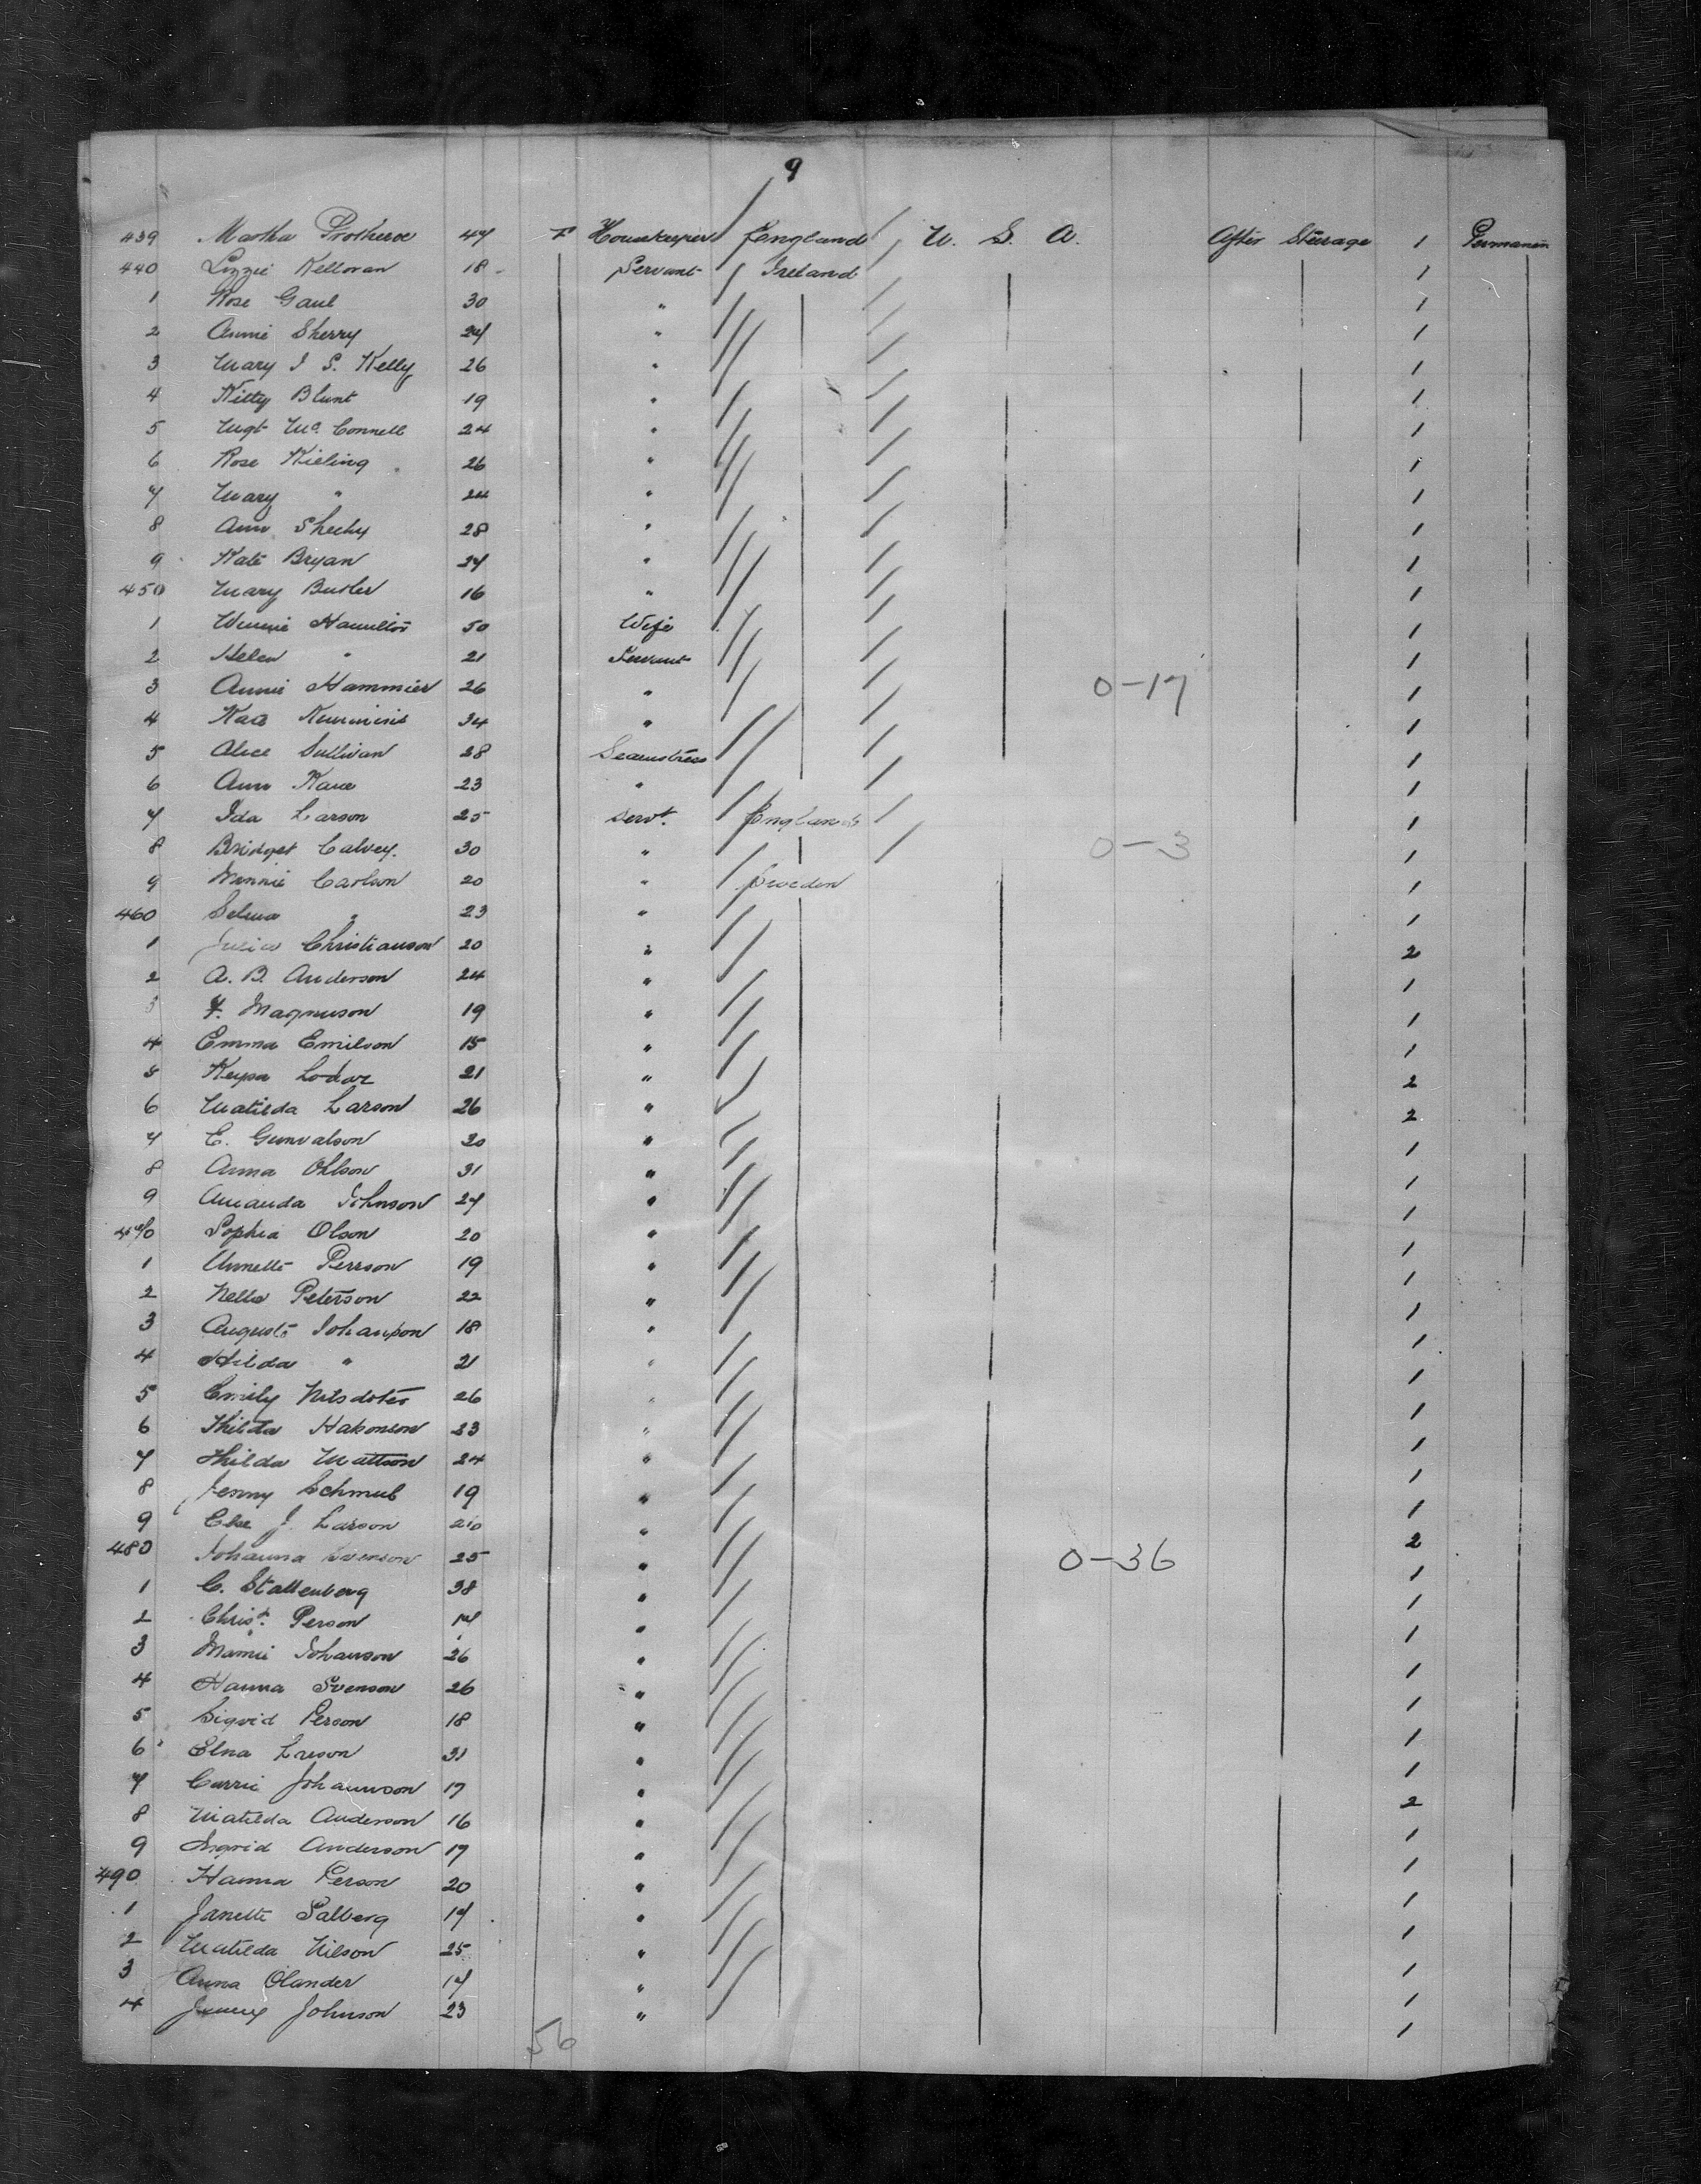 9
439 Martha Protheroe 47 F Housekeeper England U. S. A. After Steerage 1 Permanent
440 Lizzie Kelloran 18 Servant Ireland 1
1 Rose Gaul 30 " 1
2 Annie Sherry 24 " 1
3 Mary J S. Kelly 26 " 1
4 Kitty Blunt 19 " 1
5 Mgt Mc Connell 24 " 1
6 Rose Kieling 26 " 1
7 Mary " 24 " 1
8 Ann Sheehy 28 " 1
9 Kate Bryan 24 " 1
450 Mary Butler 16 " 1
1 Winnie Hamilton 50 Wife 1
2 Helen " 21 Servant 1
3 Annie Hammier 26 " 0-17 1
4 Kate 34 " 1
5 Alice Sullivan 28 Seamstress 1
6 Ann Kane 23 " 1
7 Ida Larson 25 Servt. England 1
8 Bridget Calvey. 30 " 0-3 1
9 Minnie Carlson 20 " Sweden 1
460 Selma " 23 " 1
1 Christianson 20 " 2
2 A. B. Anderson 24 " 1
3 F. Magnuson 19 " 1
4 Emma Emilson 15 " 1
5 Keysa 21 " 2
6 Matilda Larson 26 " 2
7 E. Gunvalson 20 " 1
8 Anna Ohlson 31 " 1
9 Amanda Johnson 27 " 1
470 Sophia Olson 20 " 1
1 Annette Perrson 19 " 1
2 Nella Peterson 22 " 1
3 Auguste Johanson 18 " 1
4 Hilda " 21 " 1
5 Emily Nilsdoter 26 " 1
6 Thilda Hakonson 23 " 1
7 Thilda Mattson 24 " 1
8 Jenny 19 " 1
9 J. Larson 20 " 2
480 Johanna Svenson 25 " 0-36 1
1 C. Stallenberg 38 " 1
2 Christ. Person 17 " 1
3 Mamie Johanson 26 " 1
4 Hanna Svenson 26 " 1
5 Sigrid Person 18 " 1
6 Elna 31 " 1
7 Carrie Johannson 17 " 2
8 Matilda Anderson 16 " 1
9 Ingrid Anderson 17 " 1
490 Hanna Person 20 " 1
1 Janette Salberg 17 " 1
2 Matilda Nilson 25 " 1
3 Anna Olander 17 " 1
4 Johnson 23 " 1
56